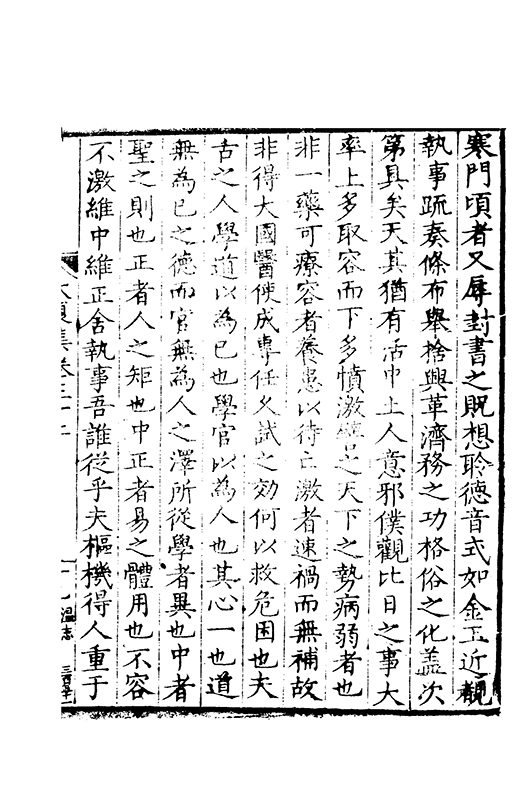 寒門頃者又辱封書之貺想聆德音式如金玉近覩
執事疏奏條布舉捨興革濟務之功格俗之化盖次
第具矣天其猶有活中土人意邪僕觀比日之事大
率上多取容而下多憤激譬之天下之勢病弱者也
非一藥可療容者養患以待亡激者速禍而無補故
非得大國醫使成專任久試之効何以救危困也夫
古之人學道以為已也學官以為人也其心一也道
無為已之德而官無為人之澤所從學者異也中者
聖之則也正者人之矩也中正者易之體用也不容
不激維中維正舍執事吾誰從乎夫樞機得人重于
集卷三十二
温志